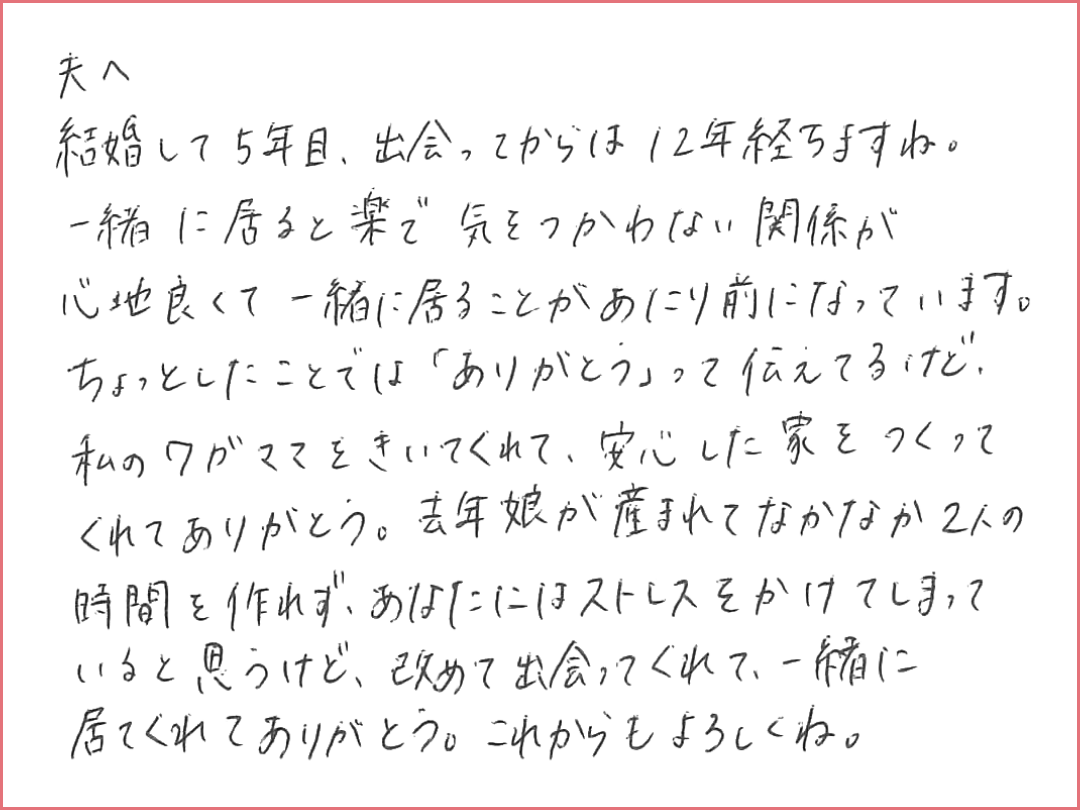 夫へ
結婚して5年目、出会ってからは12年経ちますね。
一緒に居ると楽で気をつかわない関係が
心地良くて一緒に居ることがあたり前になっています。
ちょっとしたことでは「ありがとう」って伝えてるけど、
私のワガママをきいてくれて、安心した家をつくって
くれてありがとう。去年娘が産まれてなかなか2人の
時間を作れず、あなたにはストレスをかけてしまって
いると思うけど、改めて出会ってくれて、一緒に
居てくれてありがとう。これからもよろしくね。